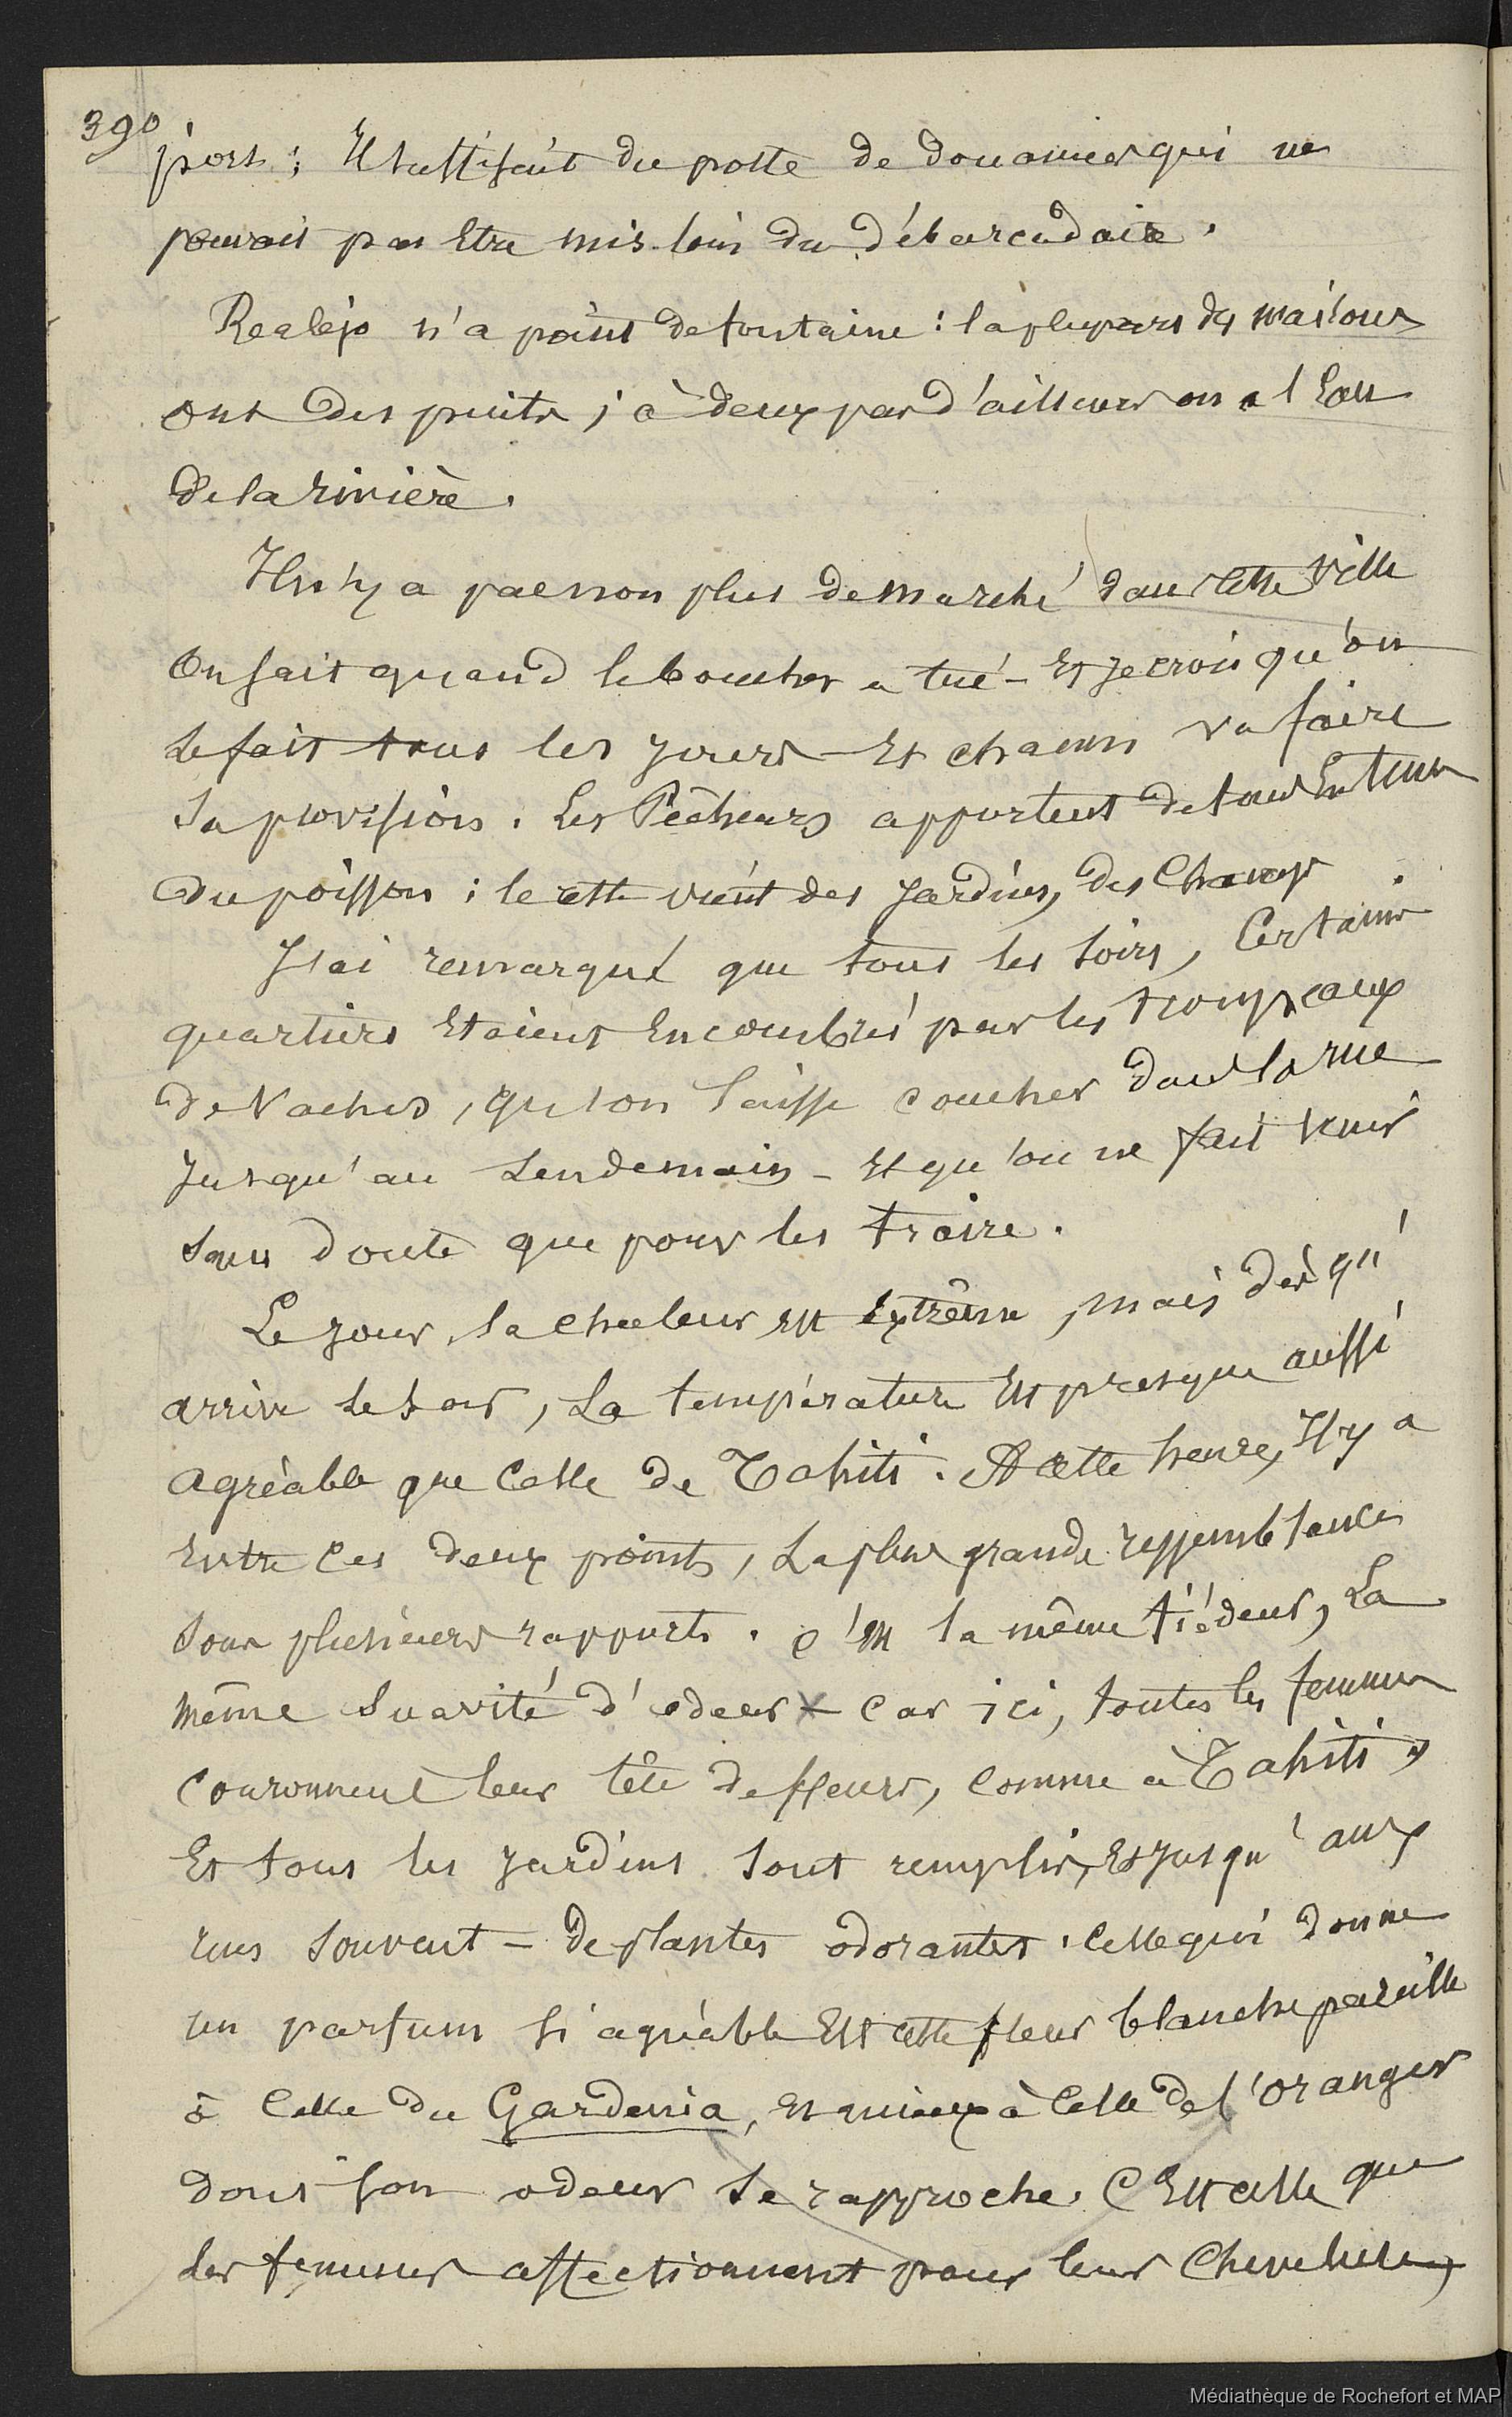 390
port ; Il suffisait du poste de douanier qui ne
pouvait pas être mis loin du débarcadaire.
Realéjo n'a point de fontaine : la plupart des maisons
ont des puits ; à deux pas d'ailleurs on a l'Eau
de la rivière.
Il n'y a pas non plus de marché dans cette ville
On sait quand le boucher a tué - Et je crois qu'on
le fait tous les jours - Et chacun va faire
sa provision. Les Pêcheurs apportent de tous Entours
du poisson ; le reste vient des Jardins, des Champs.
J'ai remarqué que tous les soirs, Certains
quartiers Etaient Encombrés par les troupeaux
de Vaches, qu'on laisse coucher dans la rue
Jusqu'au Lendemain - Et qu'on ne fait venir
sans doute que pour les traire.
Le jour, la chaleur est Extrême, mais dès qu'
arrive le soir, La température Est presque aussi
agréable que Celle de Tahiti. A cette heure, Il y a
Entre Ces deux points, La plus grande ressemblance
sous plusieurs rapports. C'Est la même tiédeur, La
même suavité d'odeur - Car ici, toutes les femmes
couronnent leur tête de fleurs, Comme à Tahiti,
Et tous les jardins sont remplis, Et jusqu'aux
rues souvent - de plantes odorantes. Celle qui donne
un parfum si agréable Est cette fleur blanche pareille
à Celle du Gardenia, Et mieux à Celle de l'oranger
dont son odeur se rapproche. C'Est celle que
les femmes affectionnent pour leur Chevelure,
Médiathèque de Rochefort et MAP